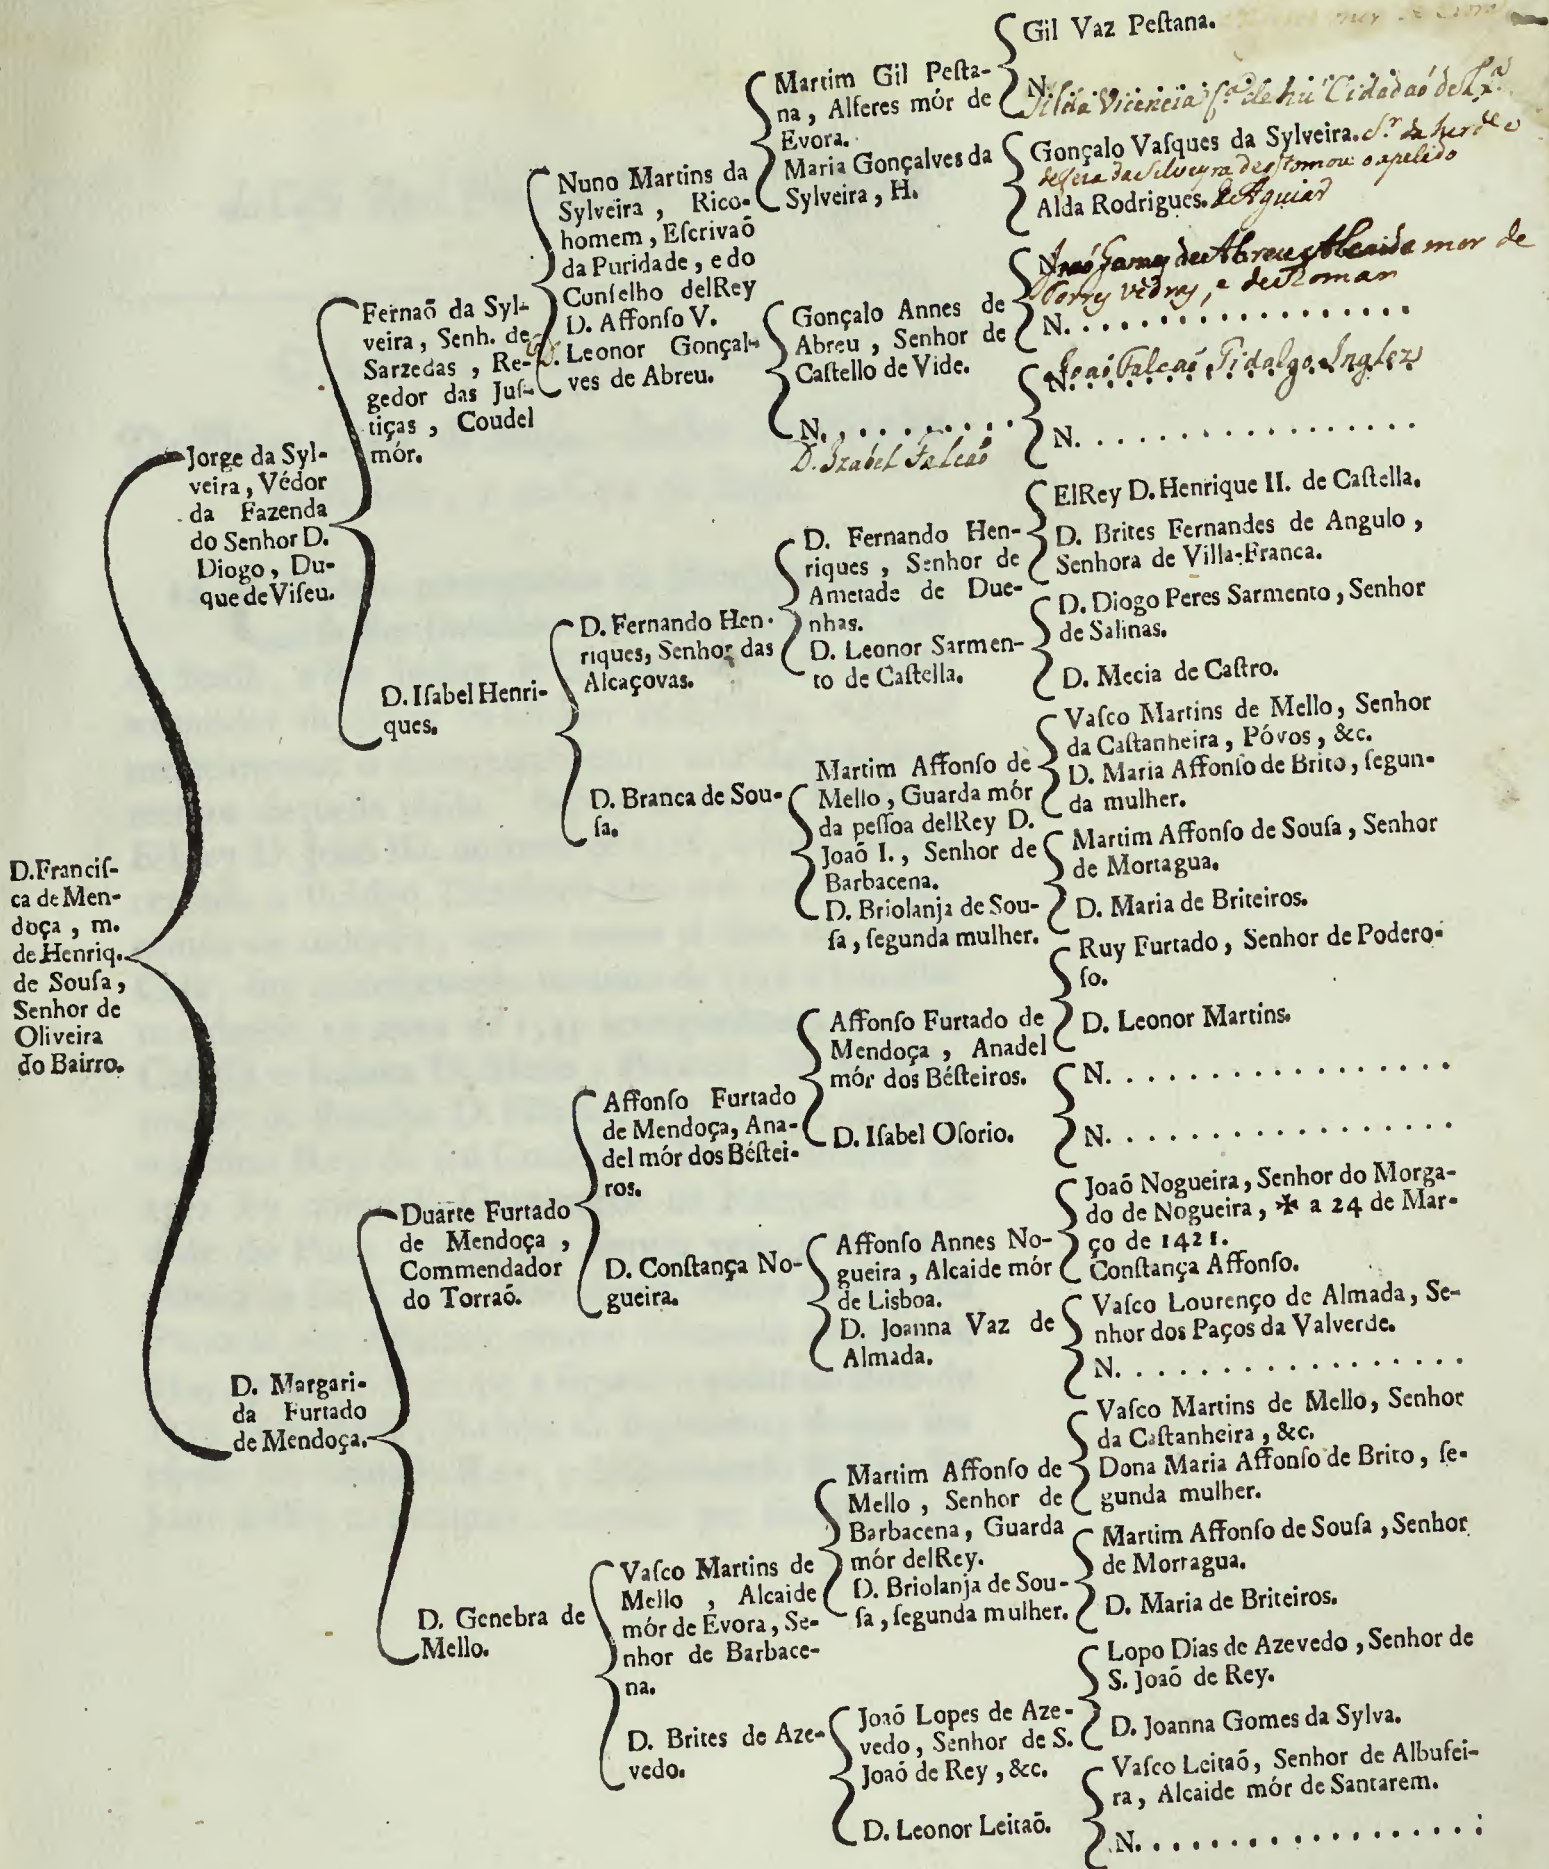 D.Franciſ-
ca de Men-
doça , m.
de Henriq.
de Souſa,
Senhor de
Oliveira
do Bairro.
Jorge da Syl-
veira, Védor
da Fazenda
do Senhor D.
Diogo, Du-
que de Viſeu.
D. Margari-
da Furtado
de Mendoça.
Fernaõ da Syl-
veira, Senh. de
Sarzedas , Re-
gedor das Juſ-
tiças , Coudel
mór.
D. Iſabel Henri-
ques.
Duarte Furtado
de Mendoça ,
Commendador
do Torraõ.
D. Genebra de
Mello.
Nuno Martins da
Sylveira , Rico-
homem, Eſcrivaõ
da Puridade, e do
Conſelho delRey
D. Affonſo V.
D. Leonor Gonçal-
ves de Abreu.
D. Fernando Hen-
riques, Senhor das
Alcaçovas.
D. Branca de Sou-
ſa.
Affonſo Furtado
de Mendoça, Ana-
del mór dos Béſtei-
ros.
D. Conſtança No-
gueira.
Vaſco Martins de
Mello , Alcaide
mór de Evora, Se-
nhor de Barbace-
na.
D. Brites de Aze-
vedo.
Martim Gil Peſta-
na, Alferes mór de
Evora.
Maria Gonçalves da
Sylveira, H.
Gonçalo Annes de
Abreu , Senhor de
Caſtello de Vide.
N. . . . . . . . . .
D. Izabel Falcaõ
D. Fernando Hen-
riques , Senhor de
Ametade de Due-
nhas.
D. Leonor Sarmen-
to de Caſtella.
Martim Affonſo de
Mello, Guarda mór
da peſſoa delRey D.
Joaõ I., Senhor de
Barbacena.
D. Briolanja de Sou-
ſa, ſegunda mulher.
Affonſo Furtado de
Mendoça , Anadel
mór dos Béſteiros.
D. Iſabel Oſorio.
Affonſo Annes No-
gueira, Alcaide mór
de Lisboa.
D. Joanna Vaz de
Almada.
Martim Affonſo de
Mello , Senhor de
Barbacena, Guarda
mór delRey.
D. Briolanja de Sou-
ſa, ſegunda mulher.
Joaõ Lopes de Aze-
vedo, Senhor de S.
Joaõ de Rey, &c.
D. Leonor Leitaõ.
Gil Vaz Peſtana.
N.
Vicencia fª de hũ Cidadaõ de Lxª
Gonçalo Vaſques da Sylveira. Sr da herdᵉ e
da Silveyra tomou o apelido
Alda Rodrigues. de Aguiar
N.
de Abreu Alcaide mor de
Torres vedras, e de
N. . . . . . . . . . . . . . . . . .
Joaõ Falcaõ, Fidalgo Inglez
N. . . . . . . . . . . . . . . . . .
N. . . . . . . . . . . . . . . . . .
ElRey D. Henrique II. de Caſtella.
D. Brites Fernandes de Angulo ,
Senhora de Villa-Franca.
D. Diogo Peres Sarmento, Senhor
de Salinas.
D. Mecia de Caſtro.
Vaſco Martins de Mello, Senhor
da Caſtanheira, Póvos, &c.
D. Maria Affonſo de Brito, ſegun-
da mulher.
Martim Affonſo de Souſa, Senhor
de Mortagua.
D. Maria de Briteiros.
Ruy Furtado, Senhor de Podero-
ſo.
D. Leonor Martins.
N. . . . . . . . . . . . . . . . . .
N. . . . . . . . . . . . . . . . . .
Joaõ Nogueira, Senhor do Morga-
do de Nogueira, ✠ a 24 de Mar-
ço de 1421.
Conſtança Affonſo.
Vaſco Lourenço de Almada, Se-
nhor dos Paços da Valverde.
N. . . . . . . . . . . . . . . . . .
Vaſco Martins de Mello, Senhor
da Caſtanheira, &c.
Dona Maria Affonſo de Brito, ſe-
gunda mulher.
Martim Affonſo de Souſa, Senhor
de Mortagua.
D. Maria de Briteiros.
Lopo Dias de Azevedo, Senhor de
S. Joaõ de Rey.
D. Joanna Gomes da Sylva.
Vaſco Leitaõ, Senhor de Albufei-
ra, Alcaide mór de Santarem.
N. . . . . . . . . . . . . . . . . .